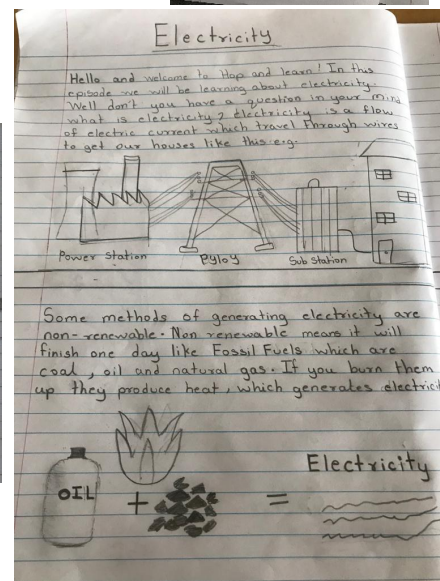 Electricity
Hello and welcome to Hop and learn! In this
episode we will be learning about electricity.
Well don't you have a question in your mind
what is electricity? Electricity is a flow
of electric current which travel through wires
to get our houses like this e.g.
Power Station
Pyloy
Sub Station
Some methods of generating electricity are
non-renewable. Non renewable means it will
finish one day like Fossil Fuels which are
coal, oil and natural gas. If you burn them
up they produce heat, which generates electricit
OIL
+
=
Electricity